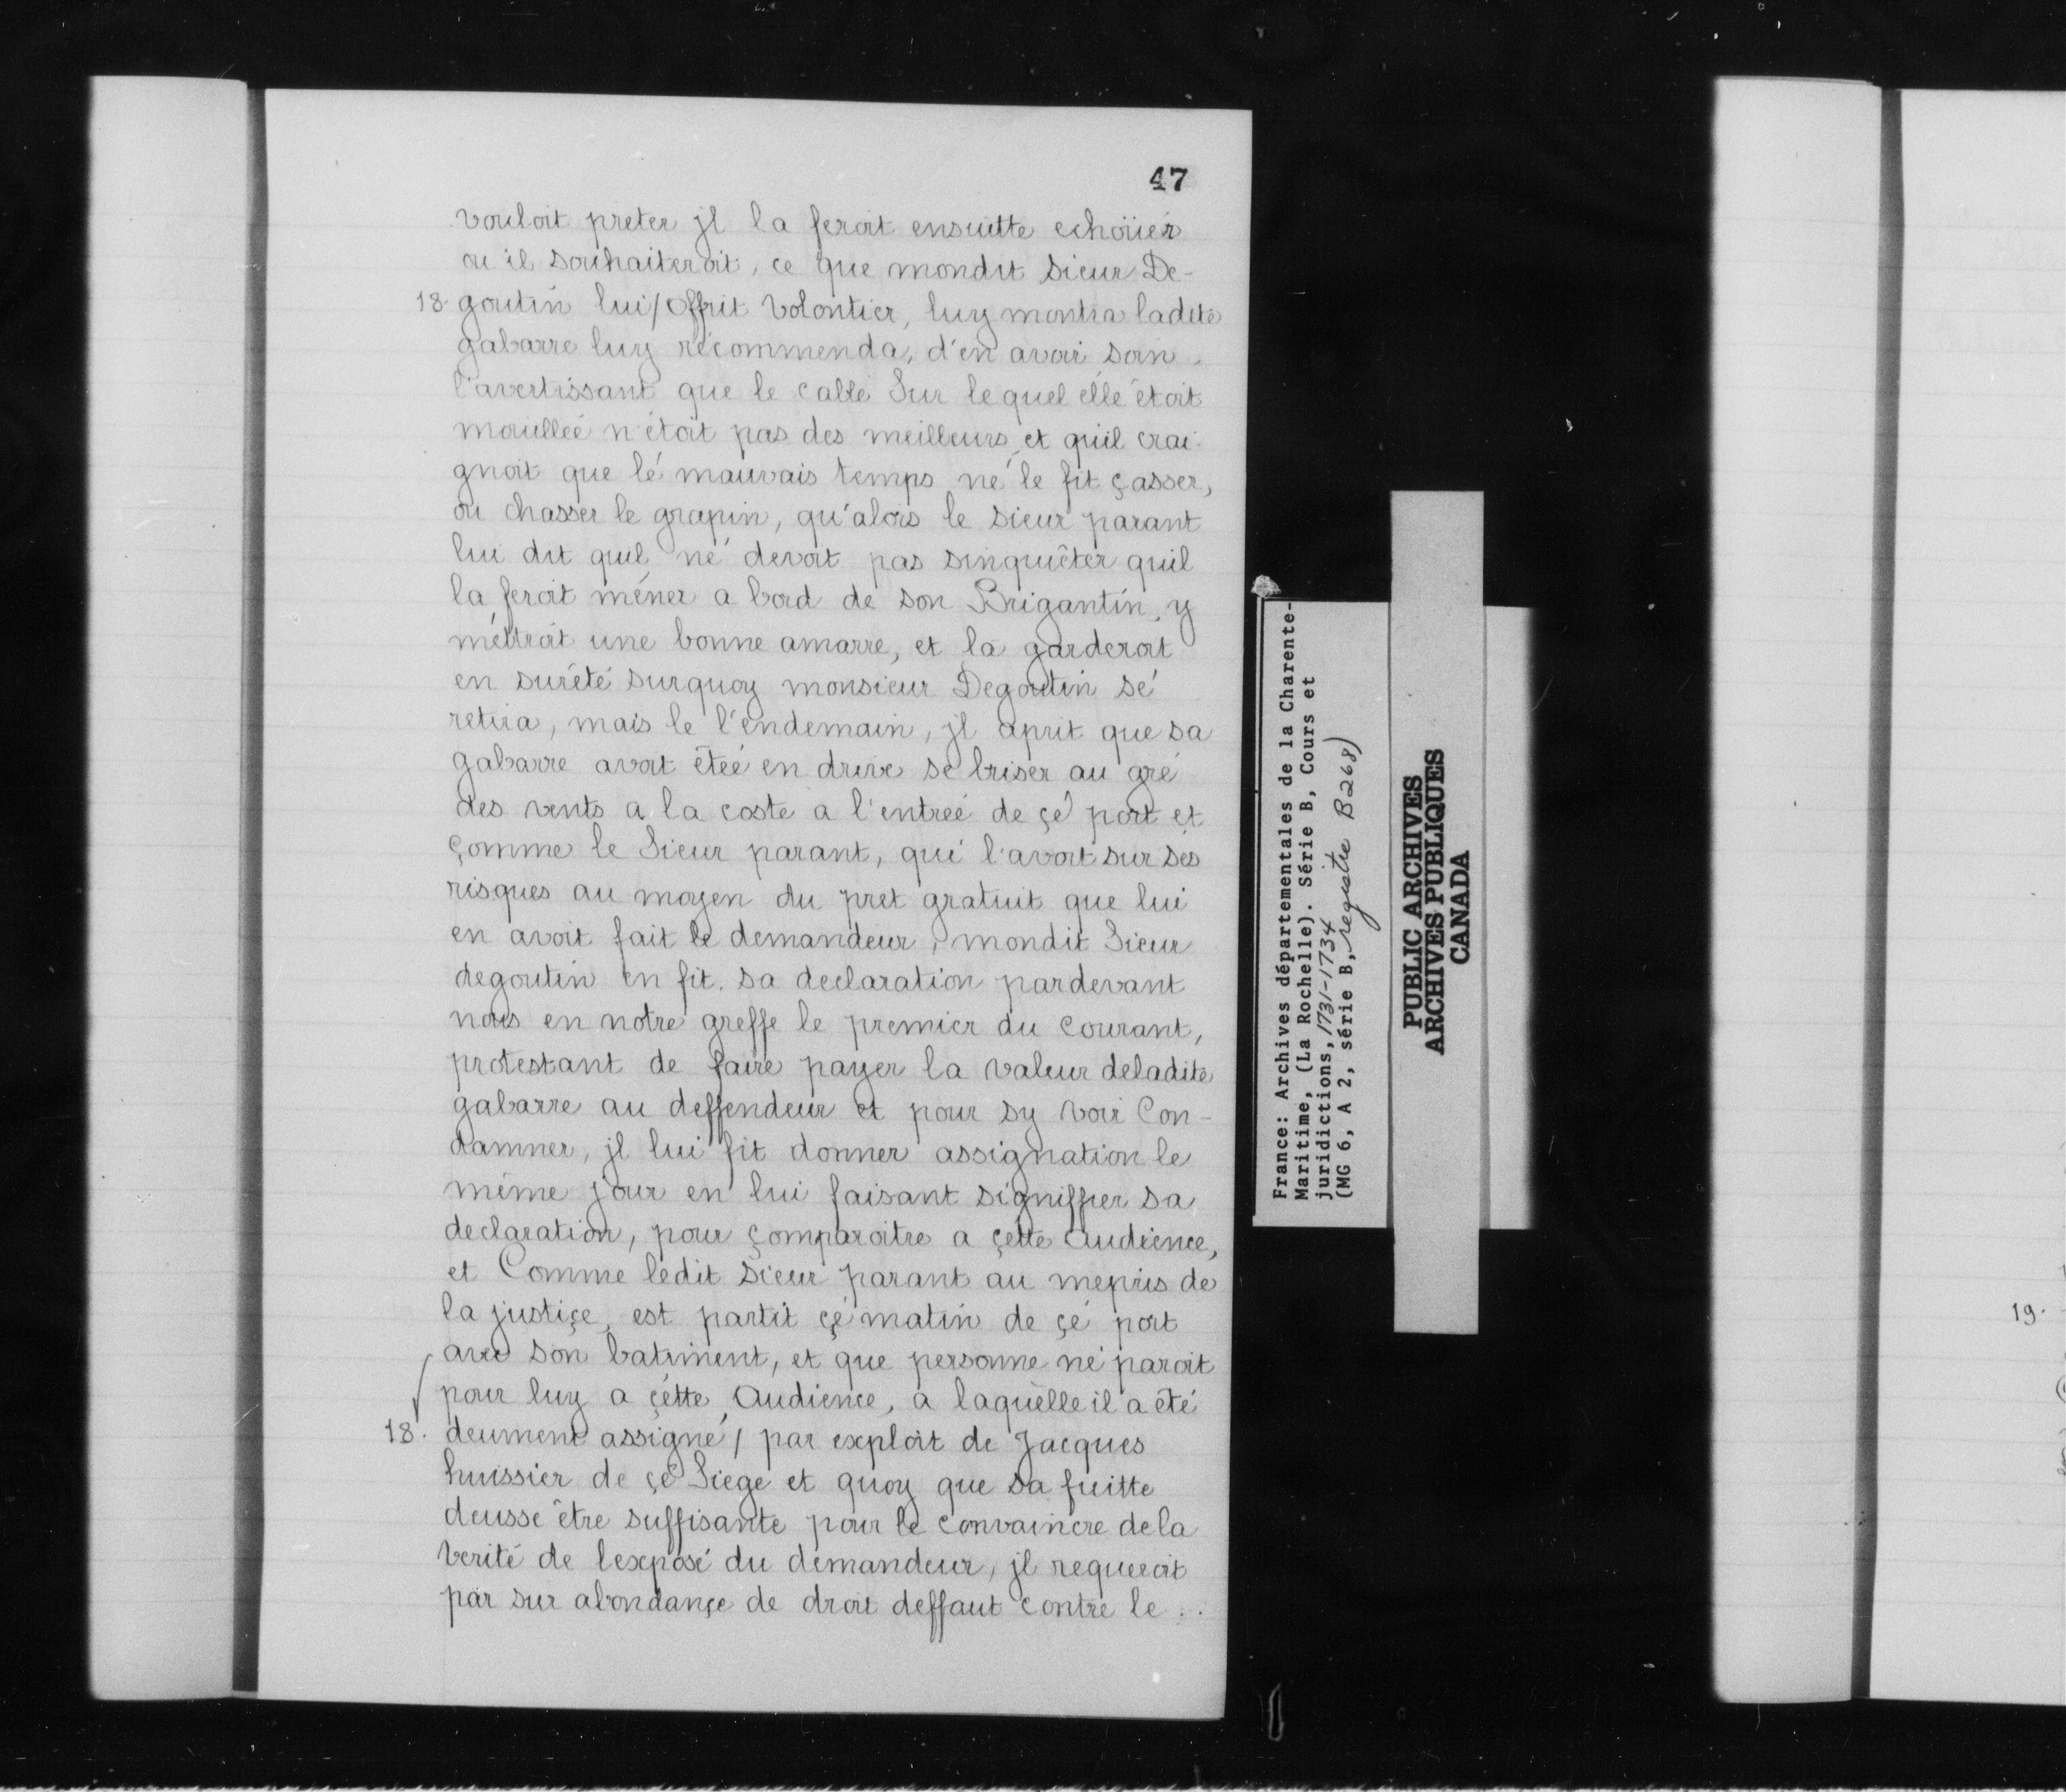 47
vouloit preter jl la feroit ensuitte echoüer
ou il souhaiteroit, ce que mondit sieur De-
18. goutin lui / Offrit volontier, luy montra ladite
gabarre luy récommenda, d'en avoir soin
l'avertissant que le calle Sur lequel elle êtoit
mouilleé n'étoit pas des meilleurs, et quil crai-
gnoit que lé mauvais temps né le fit çasser,
ou chasser le grapin, qu'alors le sieur parant
lui dit quil né devoit pas sinquiêter quil
la feroit méner a bord de son Brigantin, y
méttroit une bonne amarre, et la garderoit
en surêté surquoy monsieur Degoutin sé
retira, mais le l'endemain, jl aprit que sa
gabarre avoit êteé en drive se briser au gré
des vents a la coste a l'entreé de çé port et
çomme le Sieur parant, qui l'avoit sur ses
risques au moyen du pret gratuit que lui
en avoit fait le demandeur, mondit Sieur
degoutin en fit sa declaration pardevant
nous en notre greffe le premier du courant,
protestant de faire payer la valeur deladite
gabarre au deffendeur et pour sy voir Con-
damner, jl lui fit donner assignation le
même jour en lui faisant signiffier sa
declaration, pour çomparoitre a çette audience,
et Comme lédit sieur parant au mepris de
la justiçe, est partit çé matin de çé port
avec son batiment, et que personne né paroit
pour luy a çétte Audience, a laquelle il a êté
18. deument assigné / par exploit de Jacques
huissier de çé Siege et quoy que sa fuitte
deusse être suffisante pour le convaincre dela
verité de lexposé du demandeur, jl requeroit
par sur abondançe de droit deffaut contre le ..
France: Archives départementales de la Charente-
Maritime, (La Rochelle). Série B, Cours et
juridictions, 1731-1734
(MG 6, A 2, série B, registre B268)
PUBLIC ARCHIVES
ARCHIVES PUBLIQUES
CANADA
19.